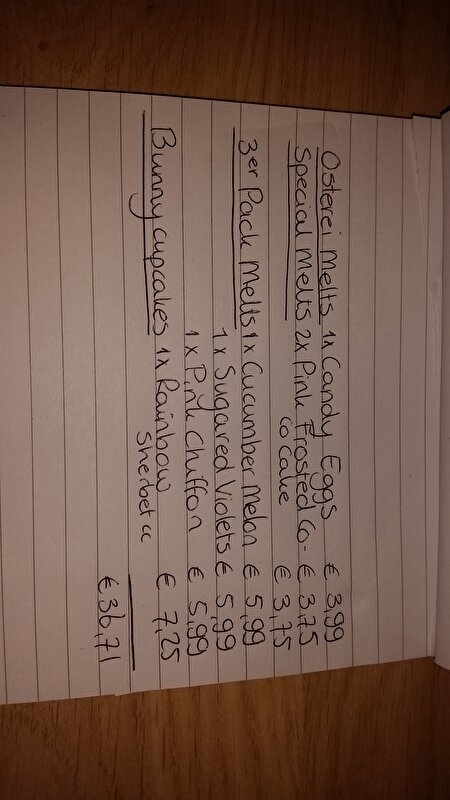 Osterei Melts 1x Candy Eggs € 3,99
Special Melts 2x Pink Frosted Co- € 3,75
co Cake € 3,75
3er Pack Melts 1x Cucumber Melon € 5,99
1x Sugared Violets € 5,99
1x Pink Chiffon € 5,99
Bunny cupcakes 1x Rainbow € 7,25
Sherbet cc
€ 36,71